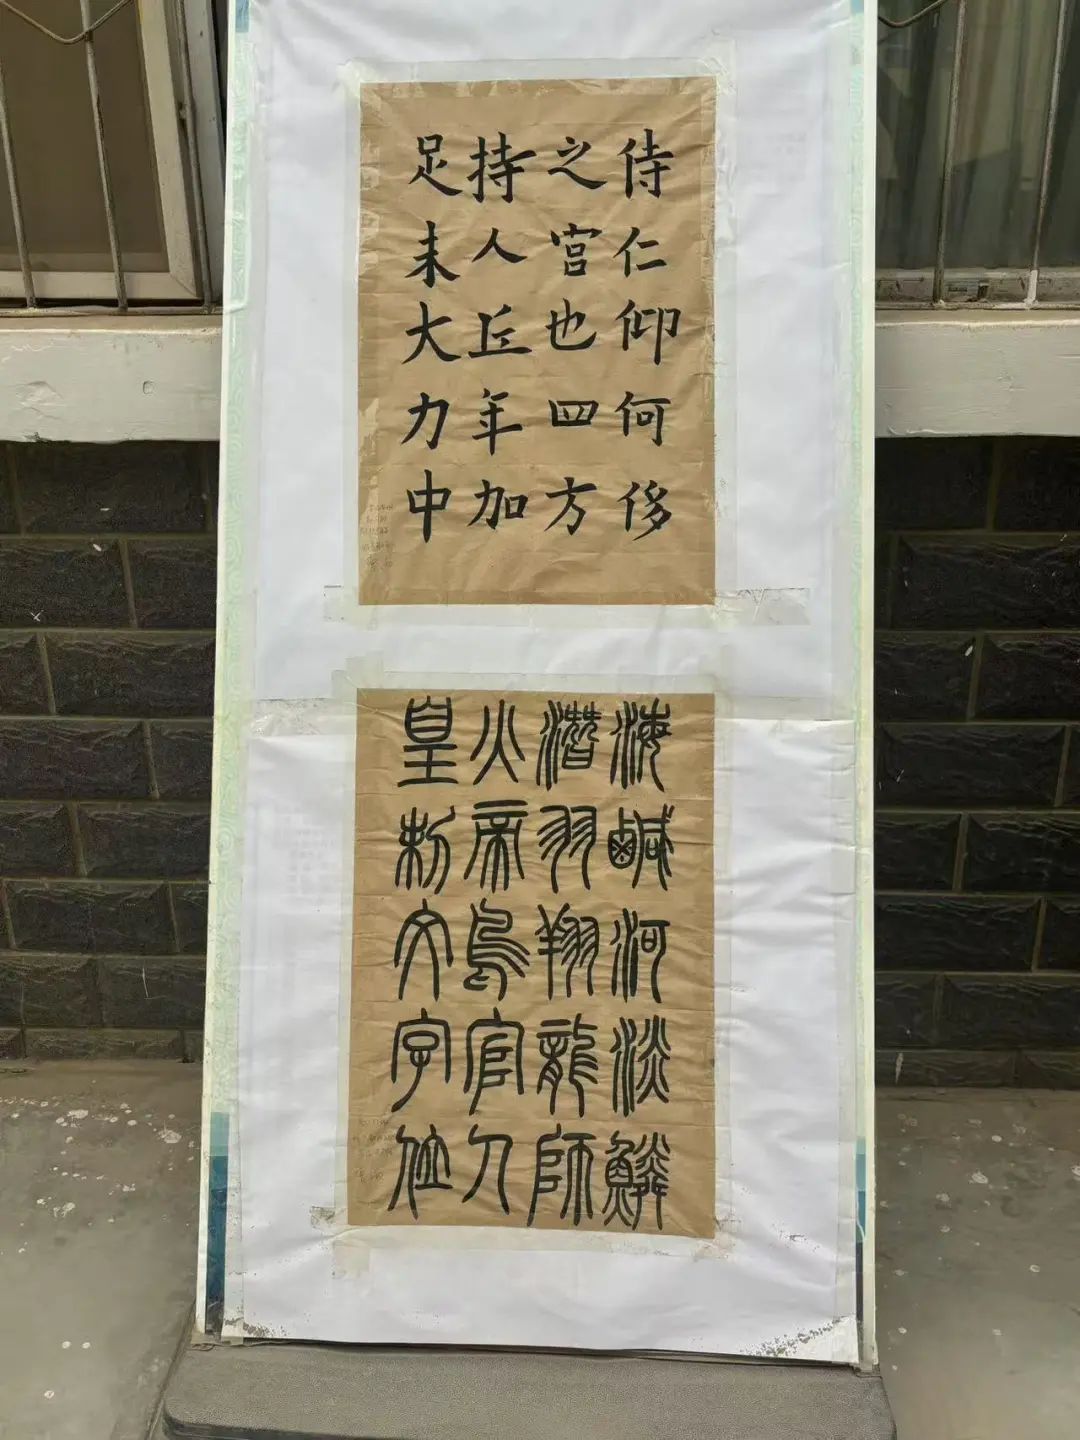 侍仁仰何侈
之宫也四方
持人丘年加
足未大力中
海鹹河淡鱗
潛羽翔龍師
火帝鳥官人
皇制文字位